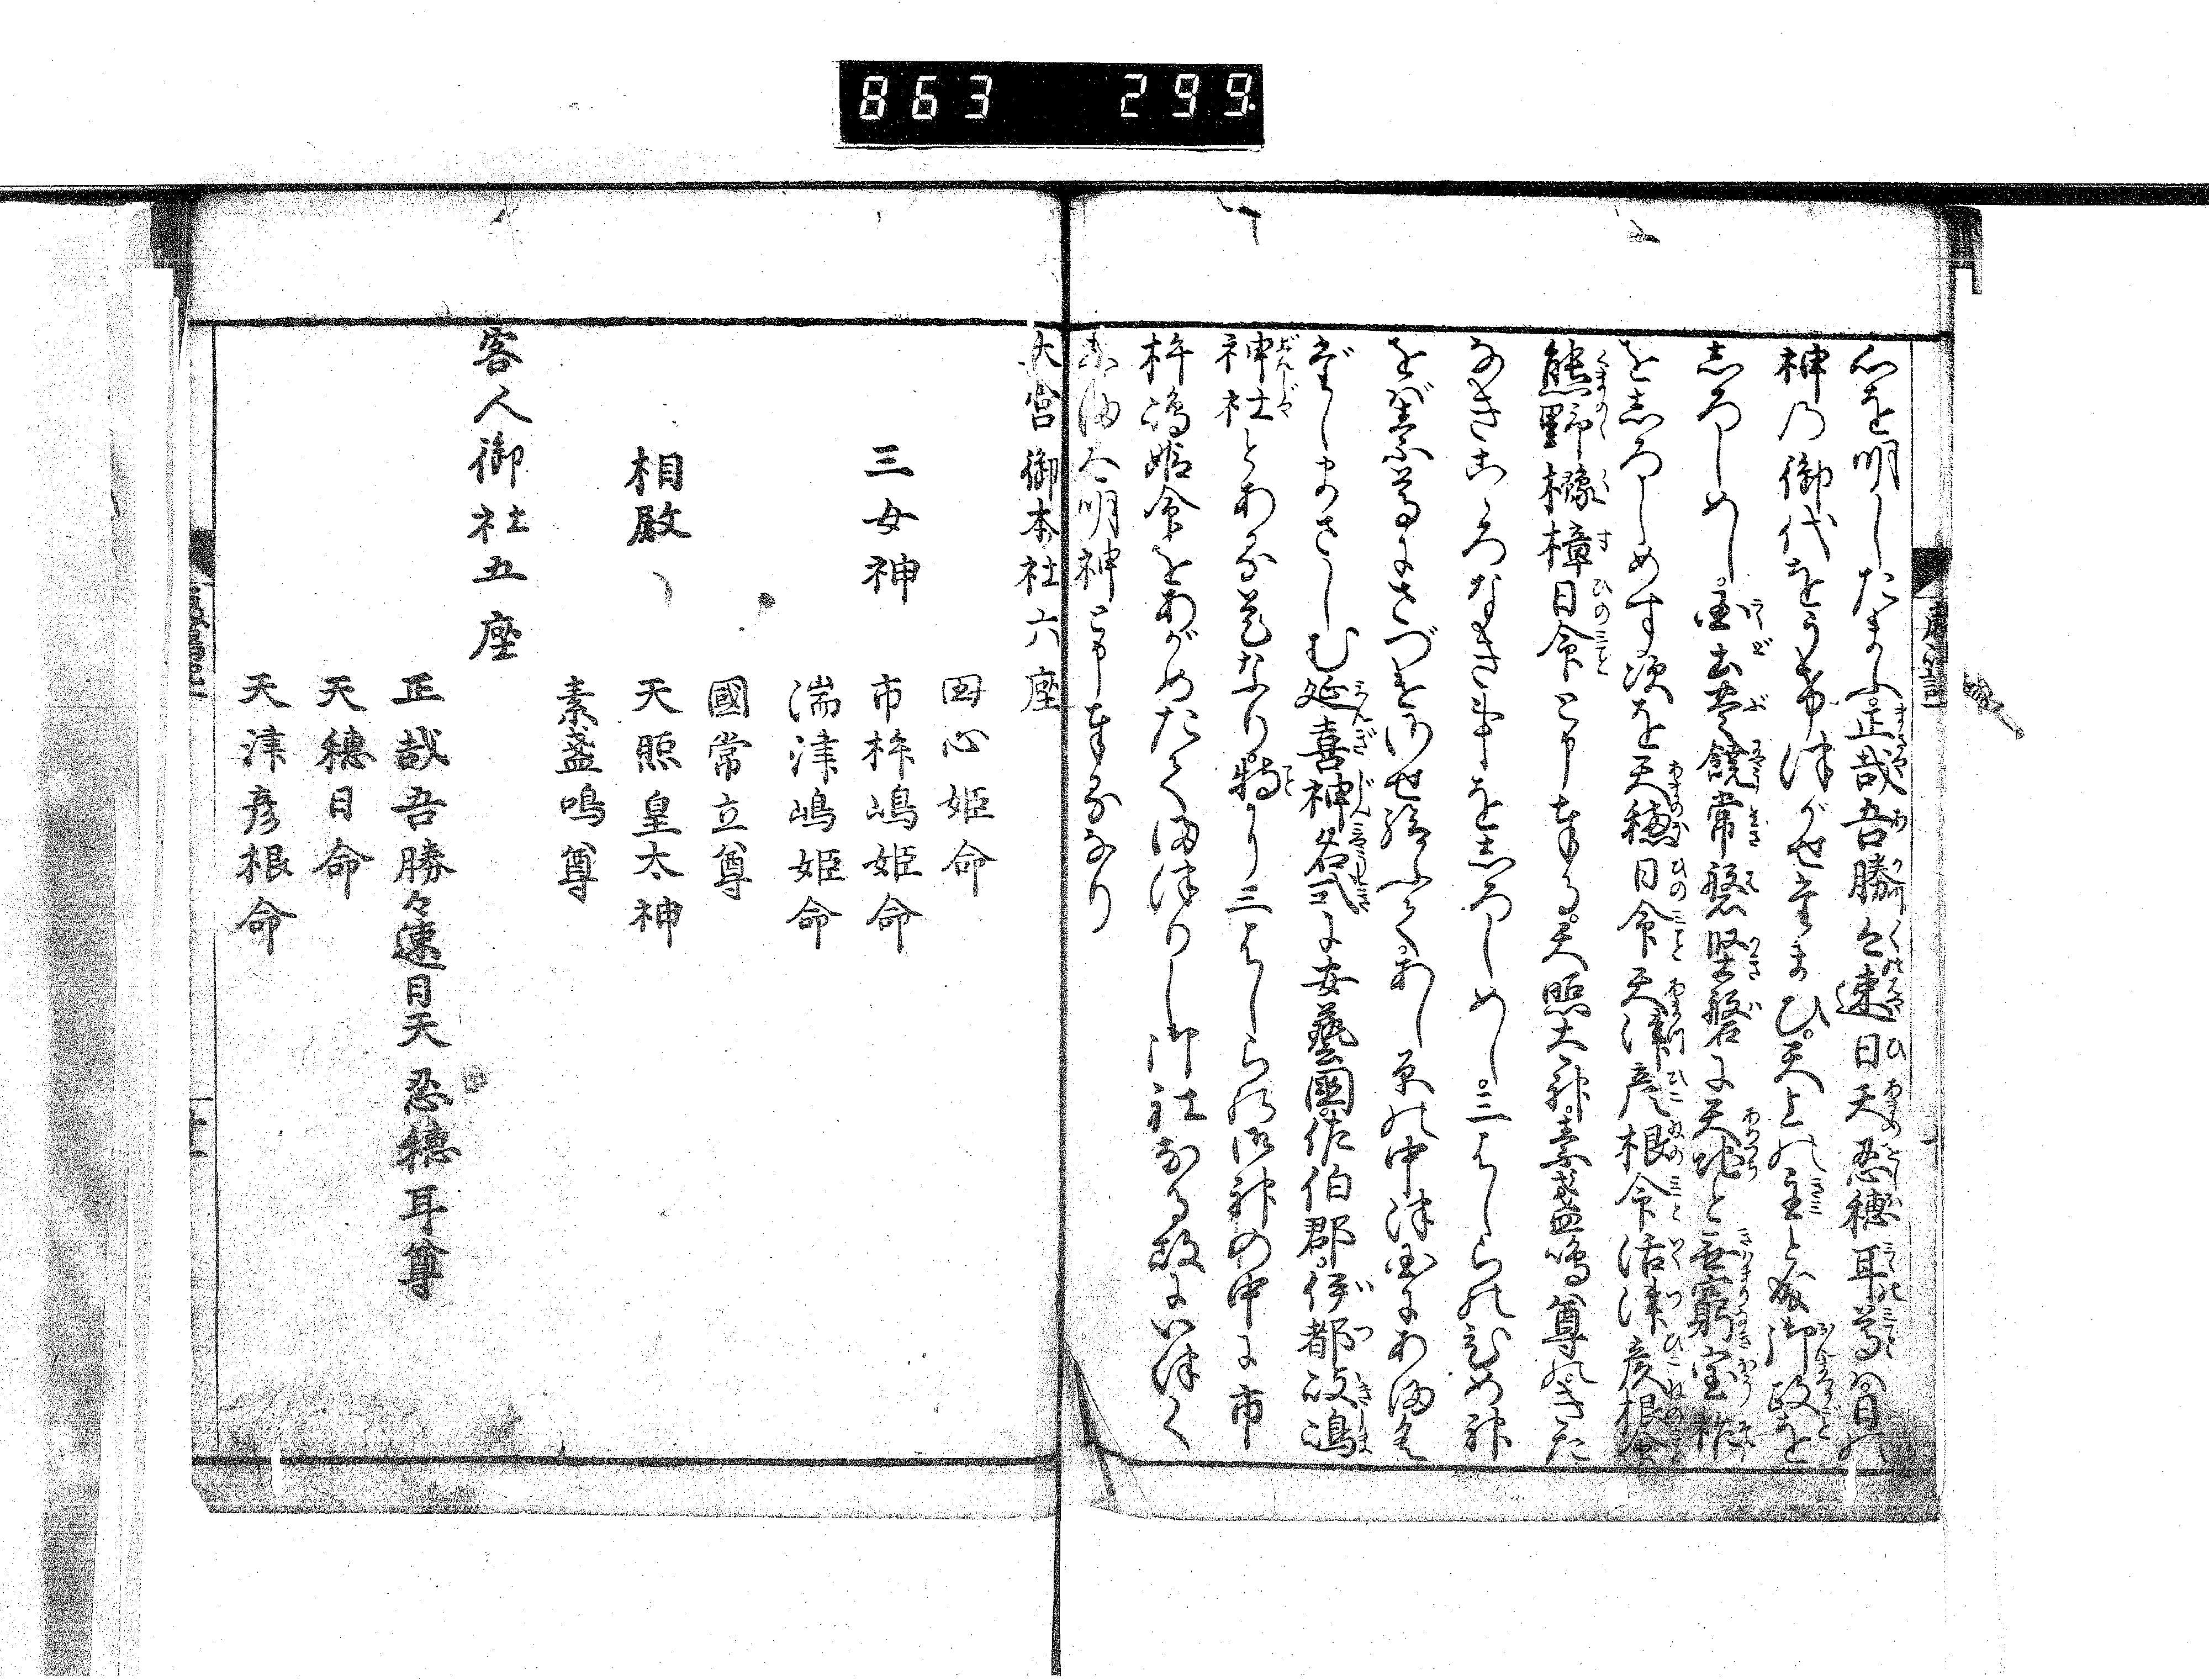 863 299
心を明したまふ。正哉吾勝々速日天忍穂耳尊は日の
神乃御代をうけ津がせたまひ。天上の主と成御政を
志ろしめし。宝壽饒常磐堅磐に天地と無窮宝祚
を志ろしめす次を天穂日命天津彦根命活津彦根命
熊野櫲樟日命と申奉る。天照大神。素盞嗚尊のきた
なきこゝろなき事を志ろしめし。三はしらのひめ神
をば素尊にさづけ
延喜神名式に安藝國。佐伯郡。伊都岐嶋
神社とある是なり。特り三はしらの御神の中に市
杵嶋姫命をあがめたてまつりし御社なる故にいつく
しま大明神と申奉るなり
大宮御本社六座
三女神
田心姫命
市杵嶋姫命
湍津嶋姫命
相殿
國常立尊
天照皇太神
素盞嗚尊
客人御社五座
正哉吾勝々速日天忍穂耳尊
天穂日命
天津彦根命